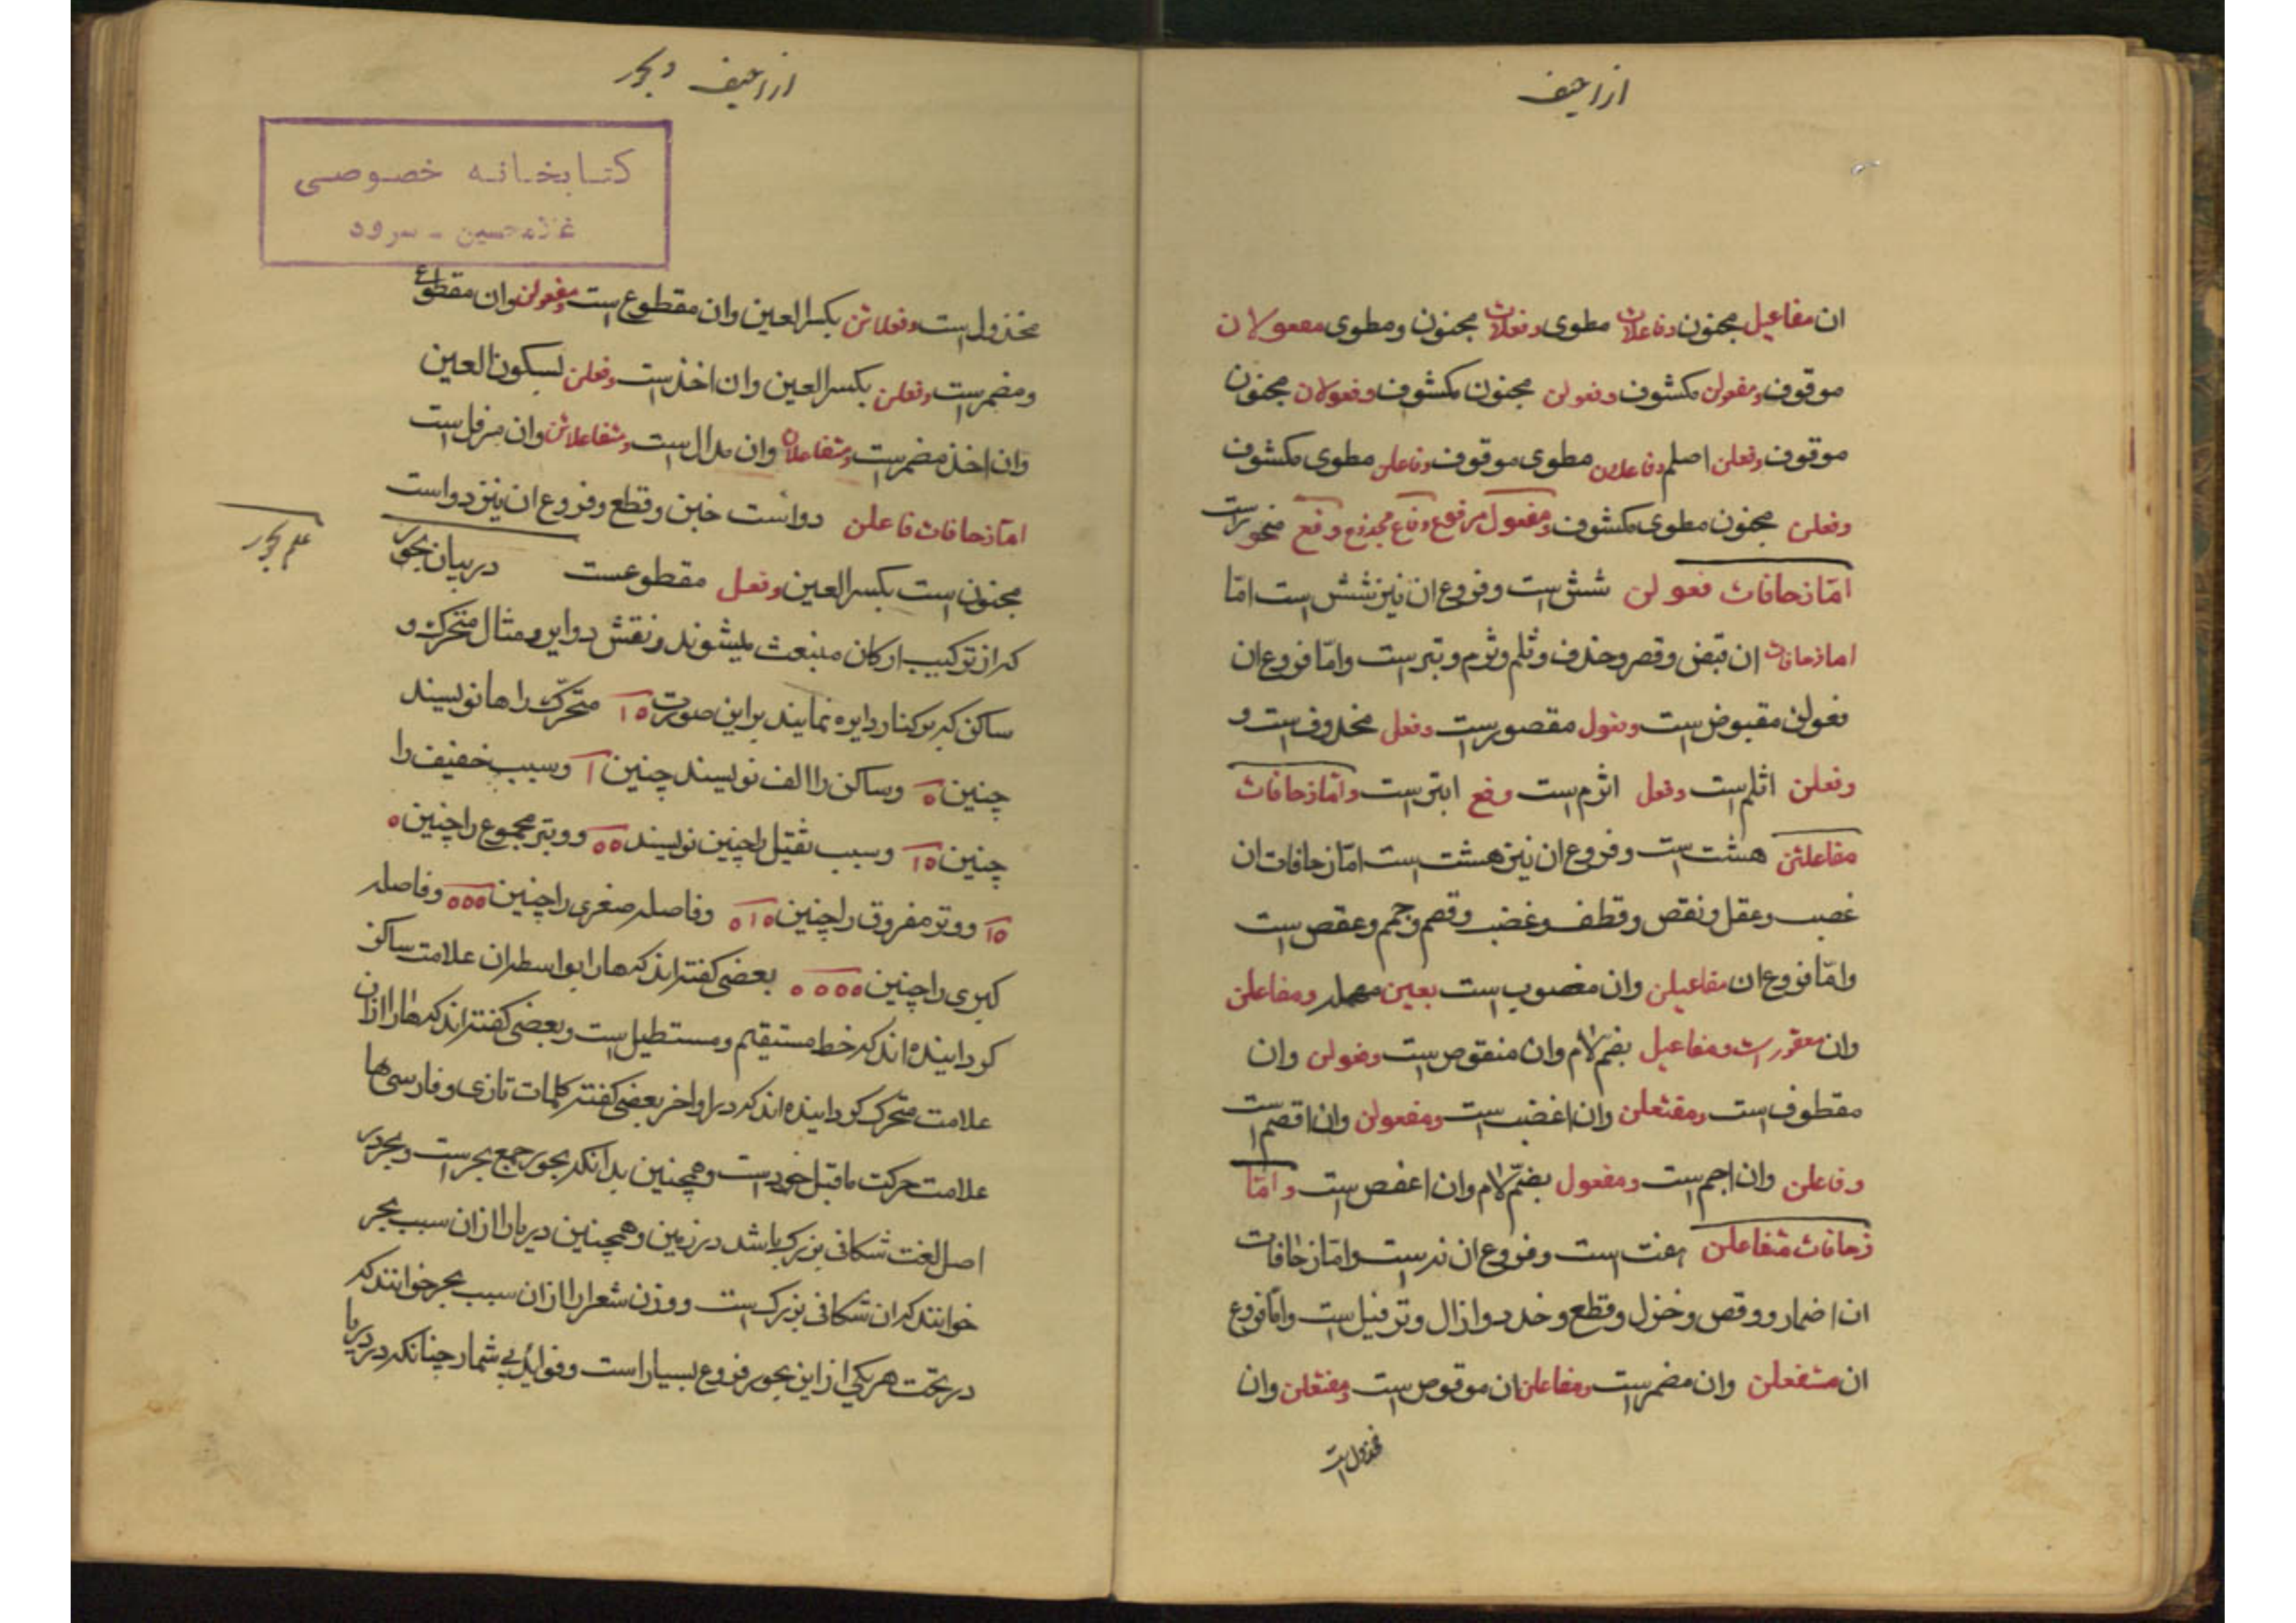 ازاحیف
ان مفاعیل مجنون وفاعلات مطوی وفعلات مجنون ومطوی مفعولان
موقوف ومفعولن مکشوف وفعولن مجنون مکشوف وفعولان مجنون
موقوف وفعلن اصلم وفاعلان مطوی موقوف وفاعلن مطوی مکشوف
وفعلن مجنون مطوی مکشوف ومفعول مرفوع وفاع مجذوع وفع منحور است
امّا زحافات فعولن شش است وفروع ان نیز شش است امّا
اما زحافات ان قبض وقصر وحذف وثلم وثرم وبتر است وامّا فروع ان
فعولن مقبوض است وفعول مقصور است وفعل محذوف است و
وفعلن اثلم است وفعل اثرم است وفع ابتر است وامّا زحافات
مفاعلتن هشت است وفروع ان نیز هشت است امّا زحافات ان
غصب وعقل ونقص وقطف وغضب وقصم وجمم وعقص است
وامّا فروع ان مفاعیلن وان مغصوب است بعین مهمله ومفاعلن
وان معقور است ومفاعیل بضم لام وان منقوص است وفعولن وان
مقطوف است ومفتعلن وان اغضب است ومفعولن وان اقصم است
وفاعلن وان اجم است ومفعول بضمّ لام وان اعقص است وامّا
زحافات متفاعلن است وفروع ان است وامّا زحافات
ان اضمار ووقص وخزل وقطع وحدد وازال وترفیل است وامّا فروع
ان مستفعلن وان مضمر است ومفاعلن ان موقوص است ومفتعلن وان
مخذول است
ازاحیف وبحور
کتابخانه خصوصی
غلامحسین - سرود
مخذول است وفعلاتن بکسر العین وان مقطوع است ومفعولن وان مقطوع
ومضمر است وفعلن بکسر العین وان اخذ است وفعلن لسکون العین
وان اخذ مضمر است ومتفاعلان وان مدال است ومتفاعلاتن وان مرفل است
امّا زحافات فاعلن دو است خبن وقطع وفروع ان نیز دو است
مجنون است بکسر العین وفعل مقطوعست در بیان بحور
علم بحور
که از ترکیب ارکان منبعث میشوند ونقش دوایر ومثال متحرک و
ساکن که بر کنار دایره نمایند براین صورت ١٥ متحرّک را ها نویسند
چنین ٥ وساکن را الف نویسند چنین ١ وسبب خفیف را
چنین ١٥ وسبب ثقیل را چنین نویسند ٥٥ ووتر مجموع را چنین ٥
١٥ ووتر مفروق را چنین ٥١٥ وفاصله صغری را چنین ٥٥٥ وفاصله
کبری را چنین ٥٥٥٥ بعضی کفته اند که ها را بواسطه ان علامت ساکن
کردانیده اند که خط مستقیم ومستطیل است وبعضی کفته اند که ها را ازان
علامت متحرک کردانیده اند که در اواخر بعضی کفته کلمات تازی وفارسی ها
علامت حرکت ماقبل خود است وهمچنین بدانکه بحور جمع بحر است وبحر در
اصل لغت شکافی بزرک باشد در زمین وهمچنین دیریا را ازان سبب بحر
خوانند که ان شکافی بزرک است ووزن شعر را ازان سبب بحر خوانند که
در تحت هریکی از این بحور فروع بسیار است وفواید بی شمار چنانکه در دریا